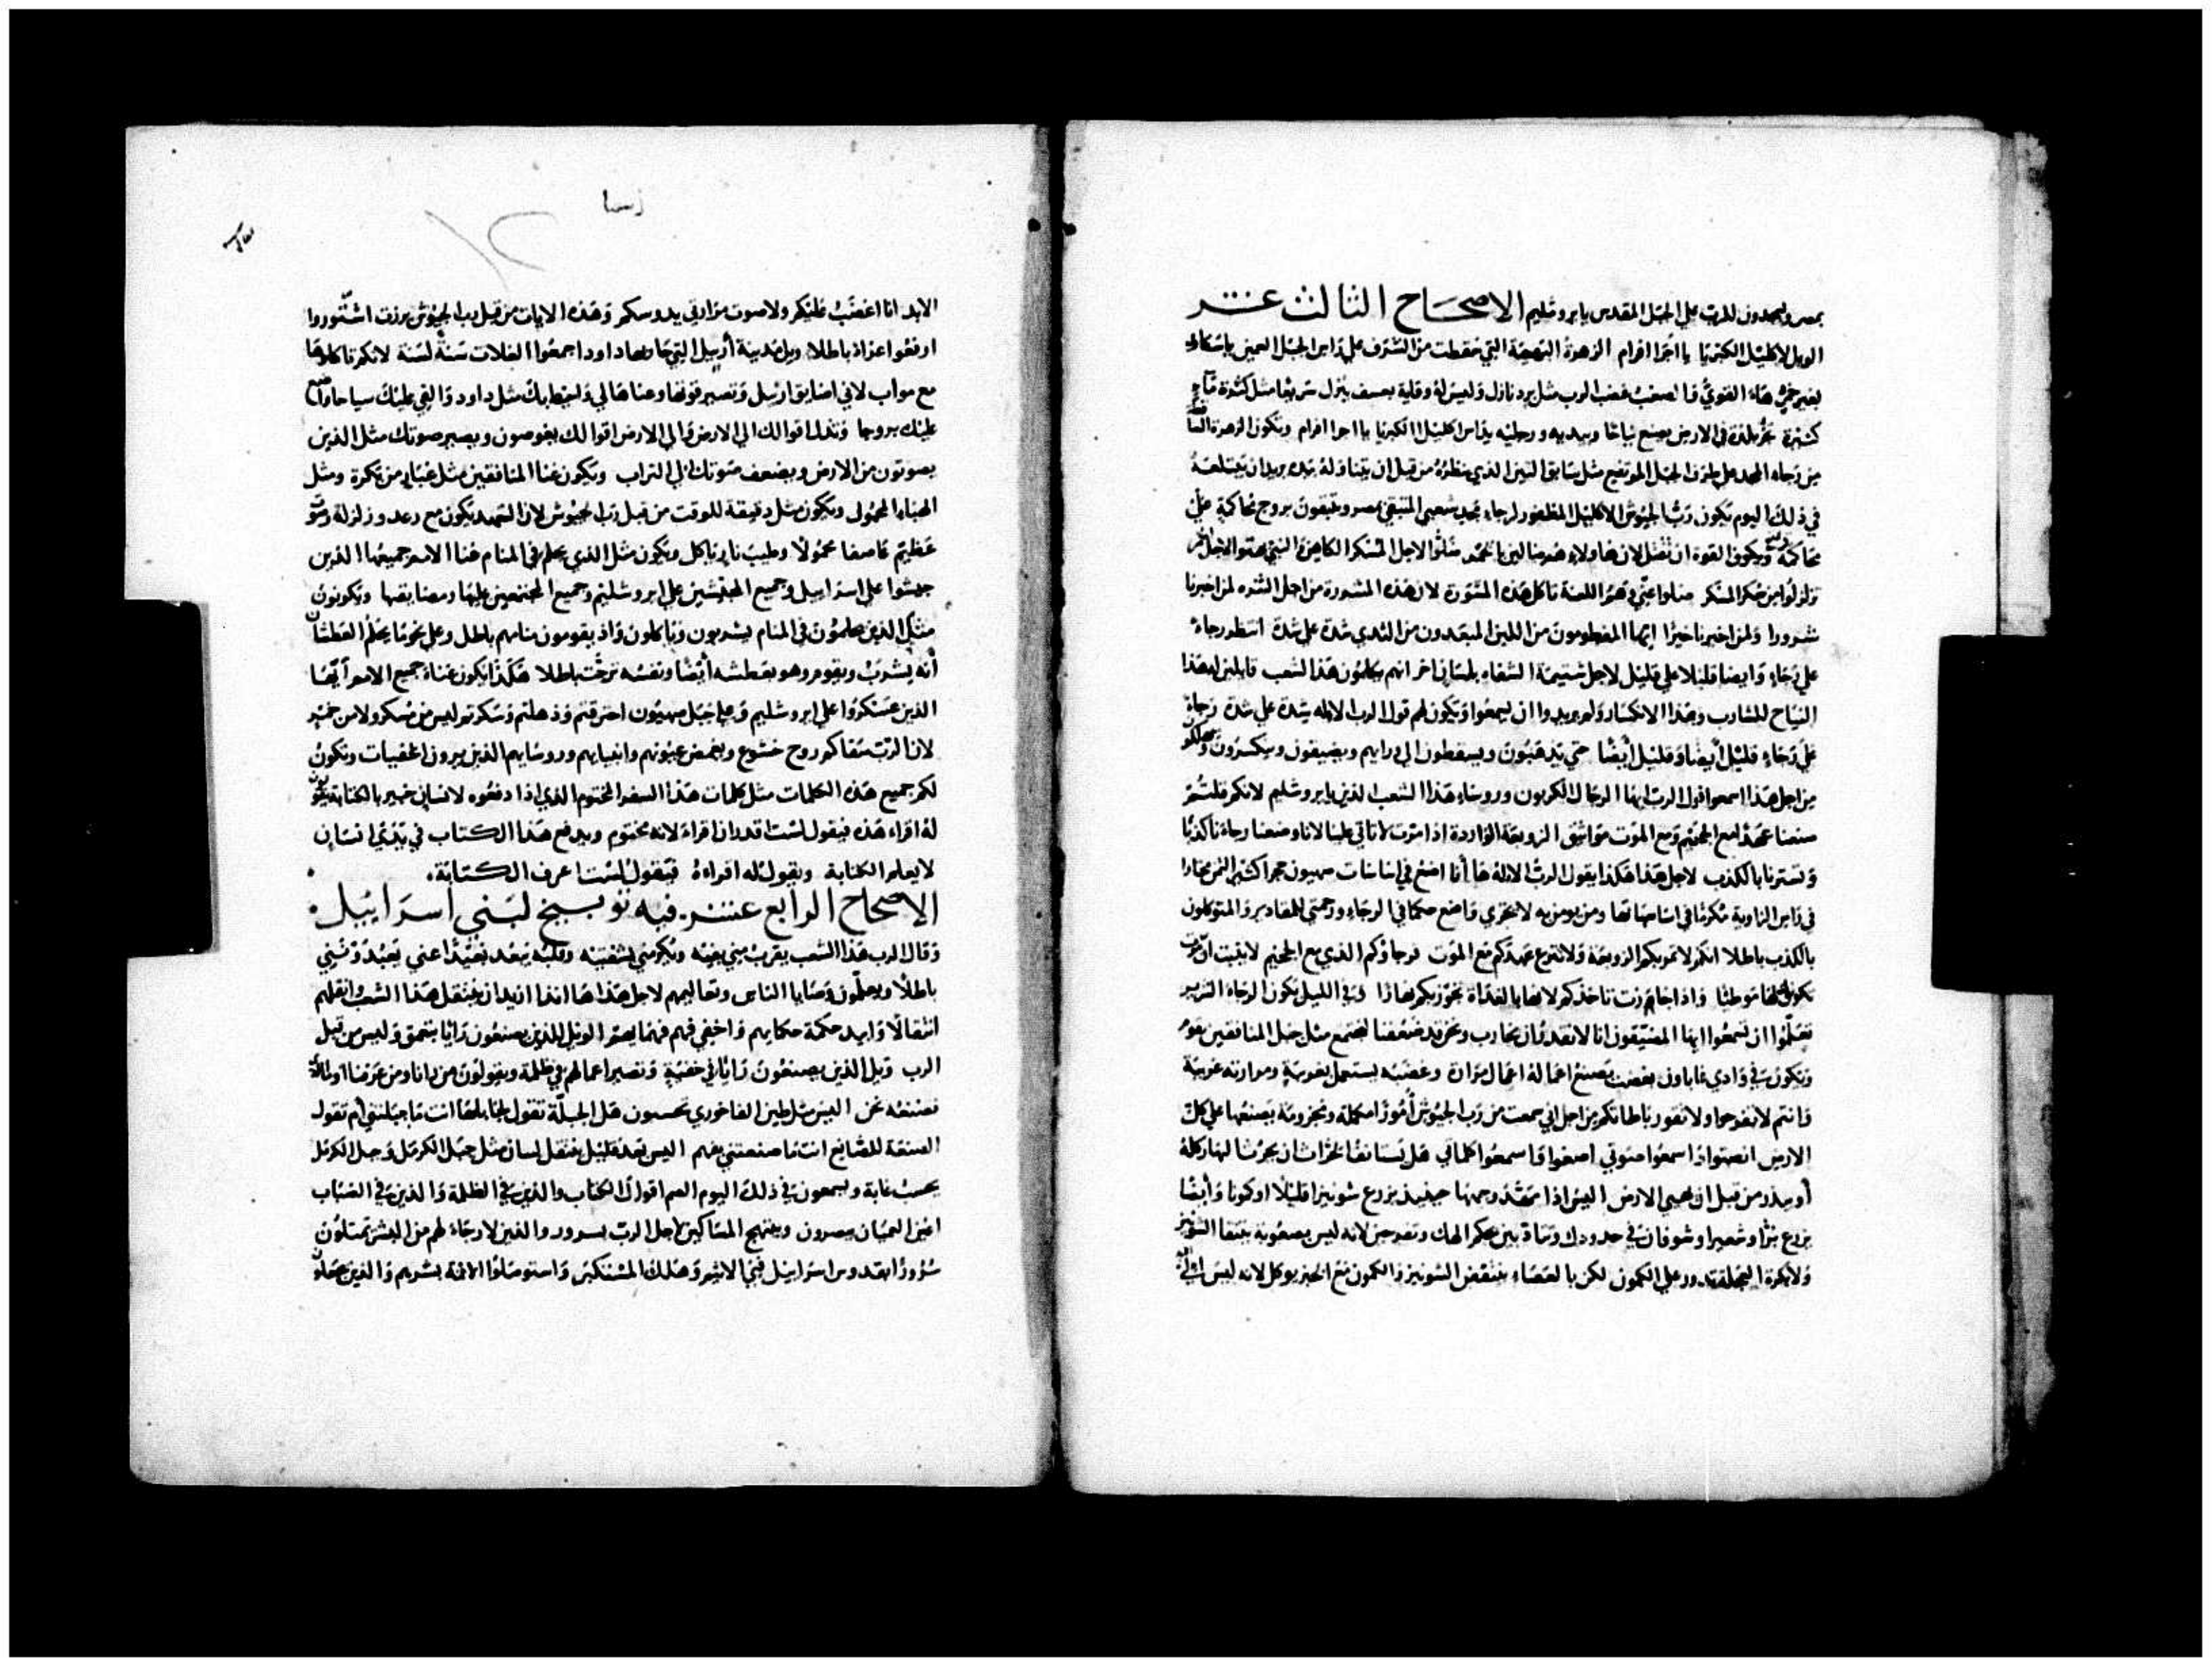 بمصر ويسجدون للرب علي الجبل المقدس بايروشليم الاصحاح الثالث عشر
الويل لاكليل الكبريا يا اجرا افرام الزهرة البهجة التي سقطت من الشرف علي راس الجبل السمين ياسكاري
بغير خمر هاء القوي والصعب غضب الرب مثل برد نازل وليس له وقاية بعسف ينزل سريعا مثل كثرة مياه
كثيرة تجر بلدة في الارض يصنع نياحا وبيديه ورجليه يداس اكليل الكبريا يا اجرا افرام وتكون الزهرة
من رجاه المجد علي طرف الجبل المرتفع مثل سابق التين الذي ينظره من قبل ان يتناوله بيده يريد ان يبتلعه
في ذلك اليوم يكون رب الجيوش الاكليل المظفور لرجاء مجد شعبي المتبقي بمصر ويبقون بروح محاكمة علي
محاكمة ويكون القوة ان تقتل لان هاولاء هم ضالين بالخمر ضلوا لاجل المسكر الكاهن والنبي
وزلزلوا من سكر المسكر ضلوا عني وهو اللعنة تاكل هذه المشورة لان هذه المشورة من اجل الشره لمن اخبرنا
شرورا ولمن اخبرنا خيرا ايها المفطومون من اللبن المبعدون من الثدي شدة علي شدة انتظر رجاء
علي رجاء وايضا قليلا علي قليل لاجل شتيمة الشفاه بلسان اخر انهم يكلمون هذا الشعب قايلين لهم هذا
النياح للشارب وهذا الانكسار ولم يريدوا ان يسمعوا ويكون لهم قول الرب الاله شدة علي شدة رجاء
علي رجاء قليل ايضا وقليل ايضا حتي يذهبون ويسقطون الي ورايهم ويضيقون وينكسرون
من اجل هذا اسمعوا قول الرب ايها الرجال المكربون وروساء هذا الشعب الذين بايروشليم لانكم قلتم
صنعنا عهدا مع الجحيم ومع الموت مواثيق الزوبعة الواردة اذا مرت لا تاتي علينا لانا وضعنا رجاءنا كذبا
وتسترنا بالكذب لاجل هذا هكذا يقول الرب الاله ها انا اضع في اساسات صهيون حجرا كثير الثمن مختارا
في راس الزاوية مكرما في اساساتها ومن يومن به لا يخزي واضع حكما في الرجاء ورحمتي للمقادير والمتوكلون
بالكذب باطلا انكم لا تمر بكم الزوبعة ولا تنزع عهدكم مع الموت ورجاوكم الذي مع الجحيم لا يثبت
تكونوا لها موطيا واذا جازت تاخذكم لانها بالغداة تجوز بكم نهارا وفي الليل يكون الرجاء الشرير
تعلموا ان تسمعوا ايها المضيقون انا لا نقدر ان نحارب ونحن قد ضعفنا لنجتمع مثل جبل المنافقين يقوم
وتكون في وادي غاباون بغضب يصنع اعماله اعمال مرارة وغضبه يستعمل بغربة ومرارته غريبة
وانتم لا تفرحوا ولا تقور باطاتكم من اجل اني سمعت من رب الجيوش امورا مكملة ومجزومة يصنعها علي كل
الارض انصتوا واسمعوا صوتي اصغوا واسمعوا كلماتي هل تستانفا الحراث ان يحرث النهار كله
او يبذر من قبل ان يحيي الارض اليس اذا مهد وجهها حينيذ يزرع شونيزا قليلا او كمونا وايضا
يزرع برا وشعيرا وشوفان في حدودك وتتادب بحكم الهك وتفرحين لانه ليس بصعوبة ينتقا الشونيز
ولا بكرة العجلة تدور علي الكمون لكن بالعصاء ينتفض الشونيز والكمون مع الخبز يوكل لانه ليس
الابد انا اغضب عليكم ولا صوت مرارتي يدوسكم وهذه الايات من قبل رب الجيوش برزت اشتوروا
ارفعوا عزاء باطلا ويل مدينة ارييل التي حاصرها داود اجمعوا الغلات سنة لسنة لانكم تاكلوها
مع مواب لاني اضايق ارييل وتصير قوتها وغناها لي واحيط بك مثل داود والقي عليك سياجا واضع
عليك بروجا وتذل اقوالك الي الارض والي الارض اقوالك يغوصون ويصير صوتك مثل الذين
يصوتون من الارض ويضعف صوتك الي التراب ويكون غنا المنافقين مثل غبار من بكرة ومثل
الهباء المحمول ويكون مثل دقيقة للوقت من قبل رب الجيوش لان التعهد يكون مع رعد وزلزلة وصوت
عظيم عاصفا محمولا ولهيب نار تاكل ويكون مثل الذي يحلم في المنام غنا الامم جميعها الذين
جيشوا علي اسراييل وجميع المجيشين علي ايروشليم وجميع المجتمعين عليها ومضايقها ويكونون
مثل الذين يحلمون في المنام يشربون وياكلون واذ يقومون منامهم باطل وعلي نحو ما يحلم العطشان
انه يشرب ويقوم وهو بعطشه ايضا ونفسه ترجت باطلا هكذا يكون غناة جميع الامم ايضا
الذين عسكروا علي ايروشليم وعلي جبل صهيون احترقتم وذهلتم وسكرتم ليس من مسكر ولا من خمر
لان الرب سقاكم روح خشوع ويغمض عيونهم وانبيايهم وروسايهم الذين يرون الخفيات وتكون
لكم جميع هذه الكلمات مثل كلمات هذا السفر المختوم الذي اذا دفعوه لانسان خبير بالكتابة
له اقراء هذه فيقول لست اقدر ان اقراء لانه مختوم ويدفع هذا الكتاب في يدي انسان
لا يعلم الكتابة ويقول له اقراءه فيقول لست اعرف الكتابة.
الاصحاح الرابع عشر فيه توبيخ لبني اسراييل.
وقال الرب هذا الشعب يقرب مني بفمه ويكرمني بشفتيه وقلبه يبعد بعيدا عني يعبدونني
باطلا ويعلمون وصايا الناس وتعاليمهم لاجل هذا ها انذا ازيد ان ينتقل هذا الشعب وانقلهم
انتقالا وابيد حكمة حكمايهم واخفي فهم فهمايهم الويل للذين يصنعون رايا بتعمق وليس من قبل
الرب ويل الذين يصنعون رايا في خفية وتصير اعمالهم في ظلمة ويقولون من رانا ومن عرفنا
نصنعه نحن اليس مثل طين الفاخوري تحسبون هل الجبلة تقول لجابلها انت ما جبلتني ام تقول
الصنعة للصانع انت ما صنعتني بفهم اليس بعد قليل ينتقل لبنان مثل جبل الكرمل وجبل الكرمل
يحسب غابة ويسمعون في ذلك اليوم الصم اقوال الكتاب والذين في الظلمة والذين في الضباب
اعين العميان يبصرون ويبتهج المساكين لاجل الرب بسرور والذين لا رجاء لهم من البشر يمتلون
سرورا بقدوس اسراييل فني الاثيم وهلك المستكبر واستوصلوا الاثمة بشرهم والذين